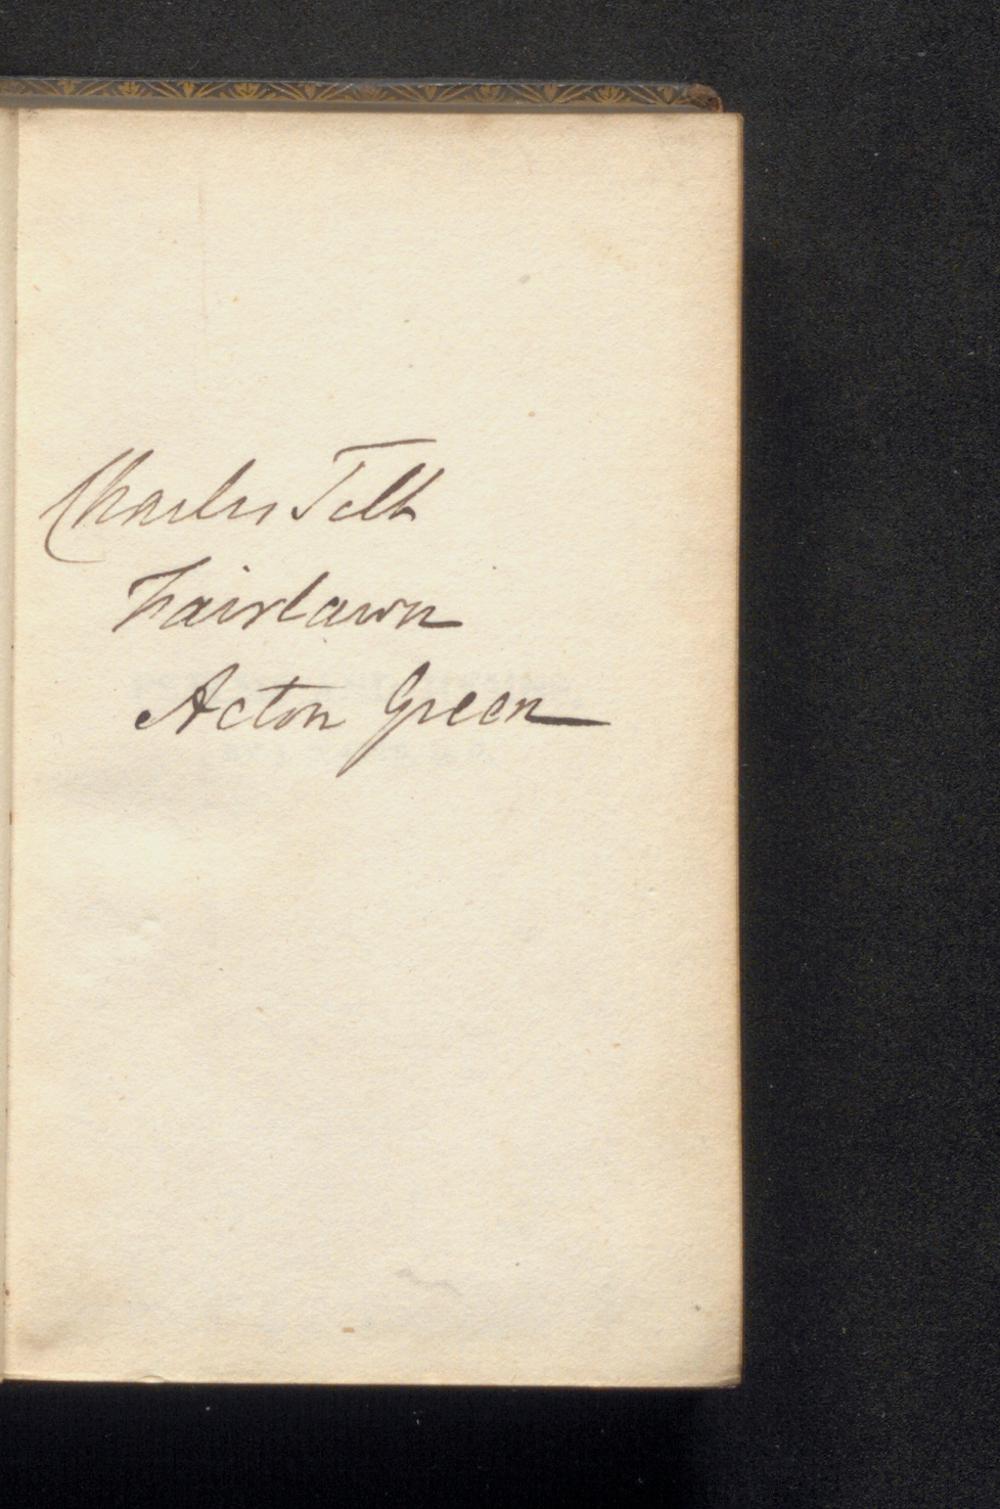 Charles Tilt
Fairlawn
Acton Green